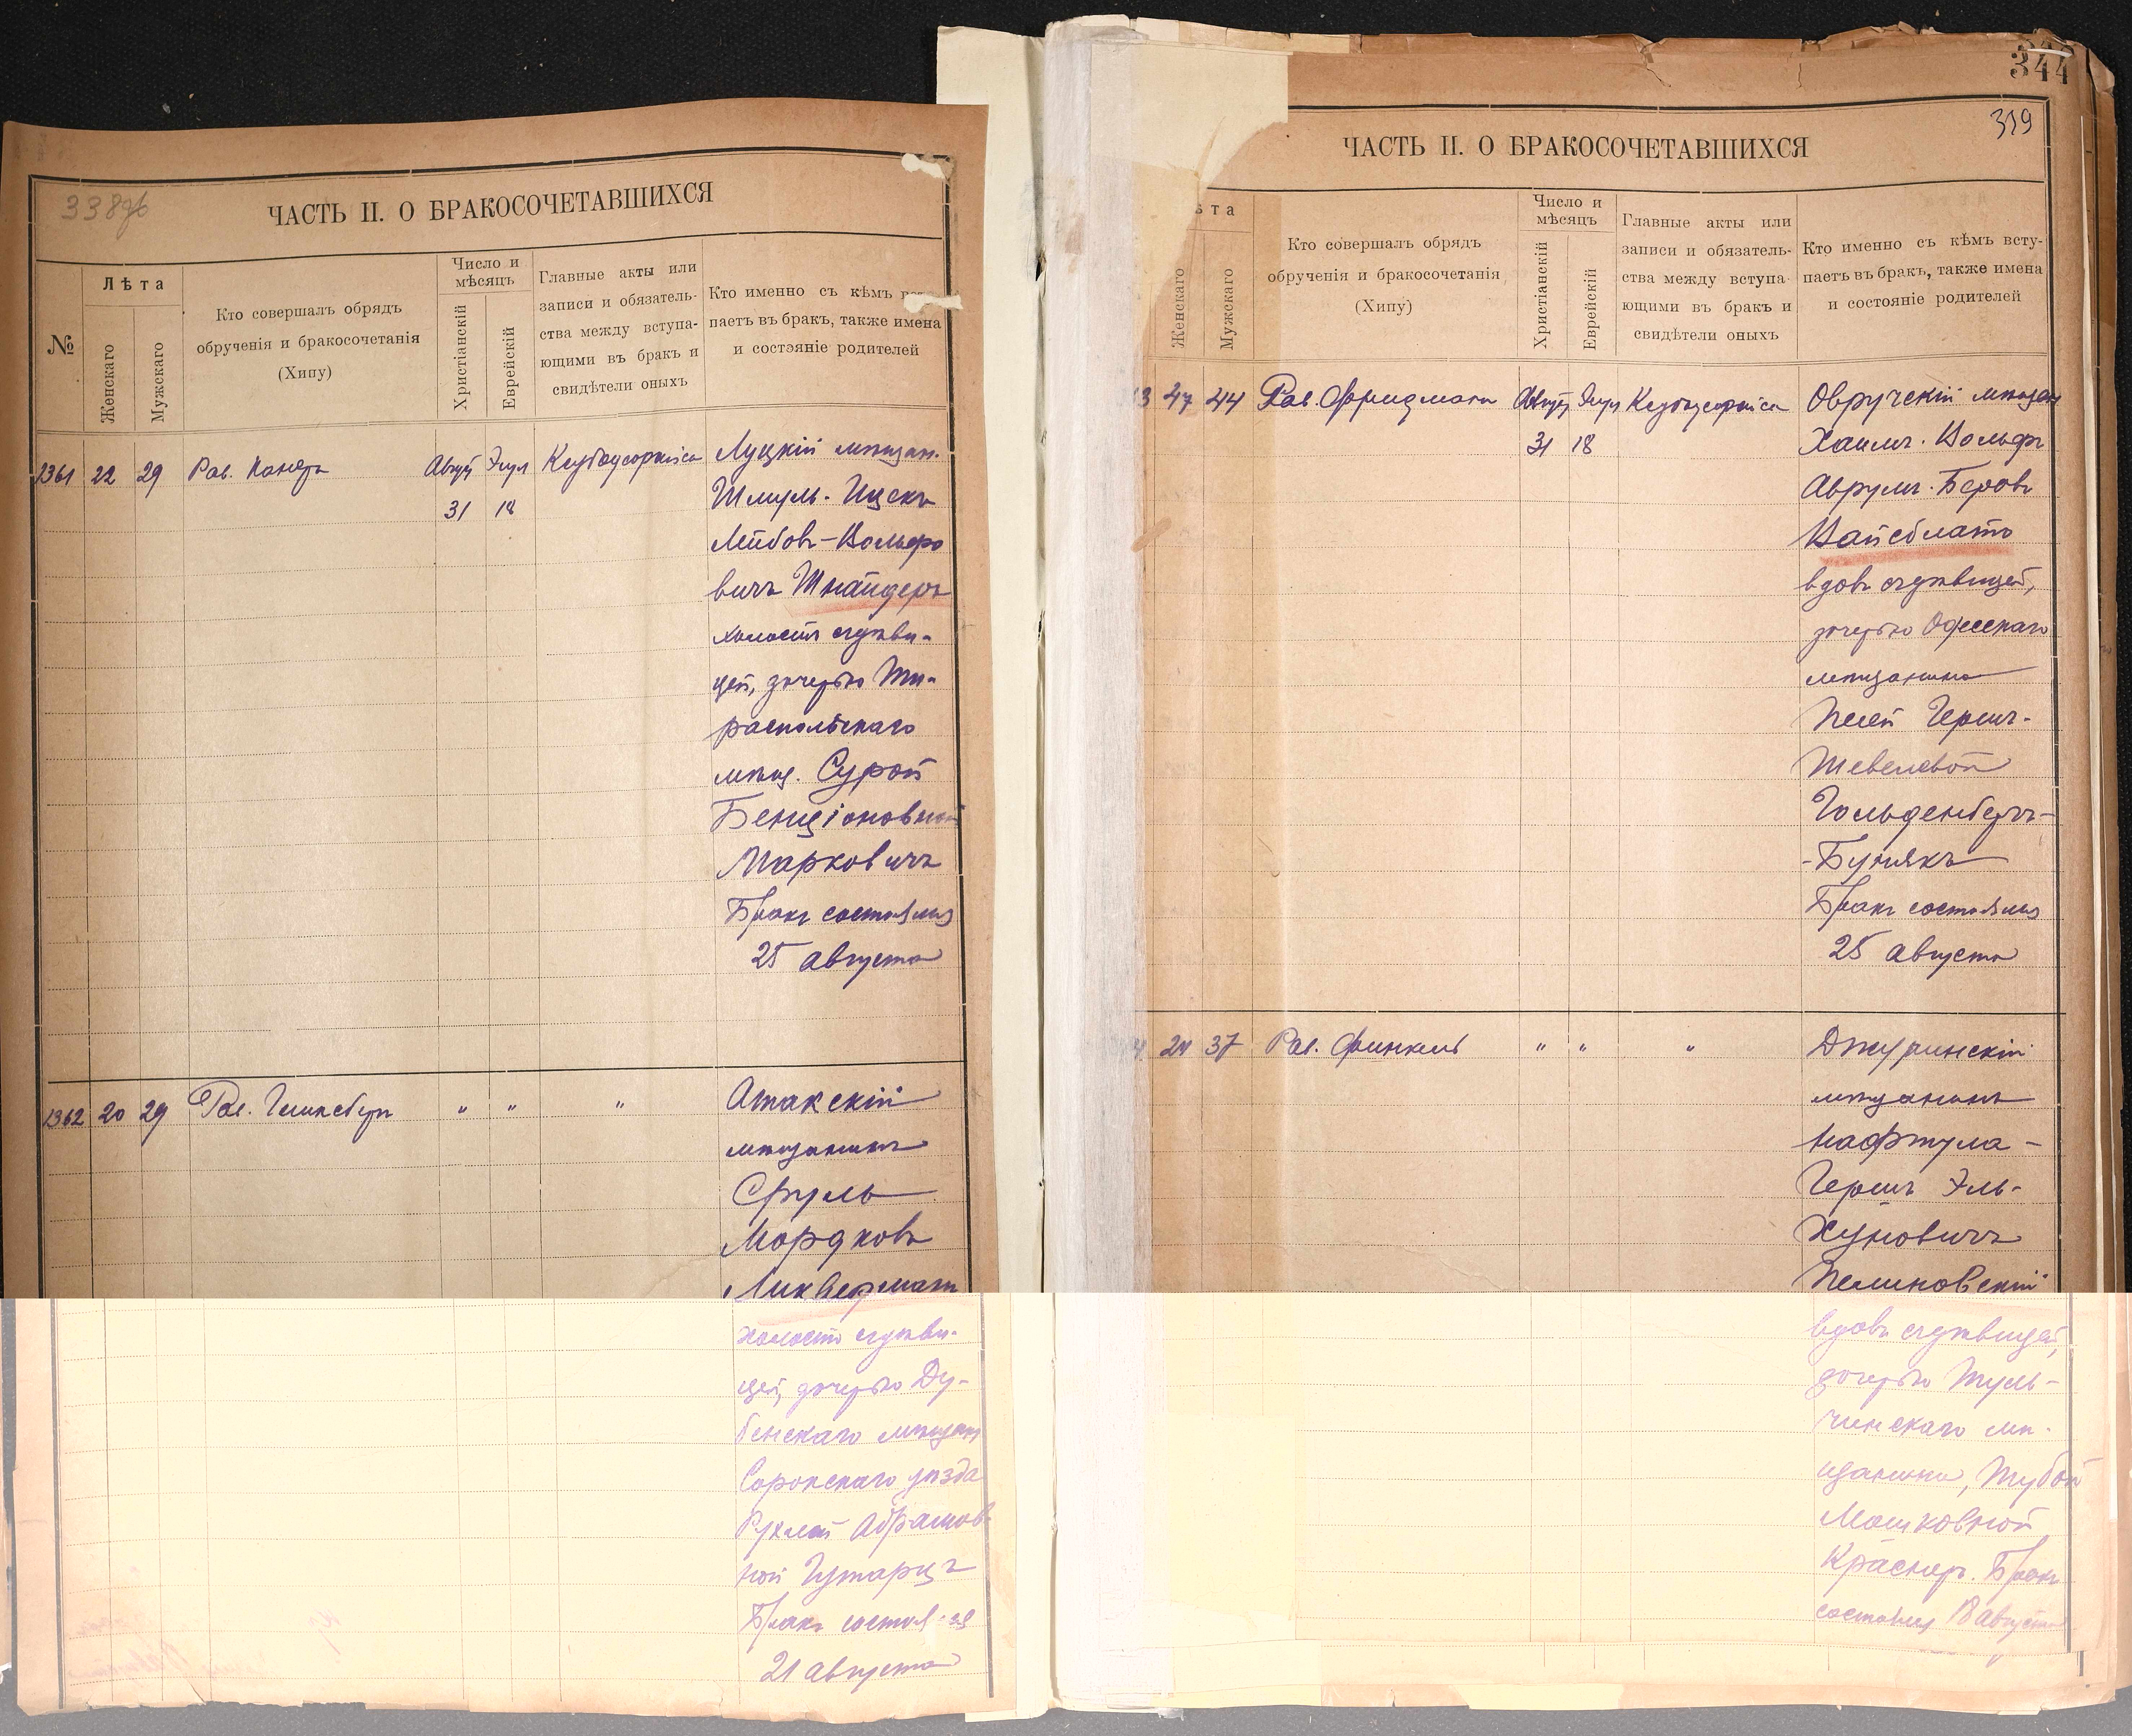 338об
ЧАСТЬ II. О БРАКОСОЧЕТАВШИХСЯ
№
Лѣта
Женскаго
Мужскаго
Кто совершалъ обрядъ
обрученія и бракосочетанія
(Хипу)
Число и
мѣсяцъ
Христіанскій
Еврейскій
Главные акты или
записи и обязатель-
ства между вступа-
ющими въ бракъ и
свидѣтели оныхъ
Кто именно съ кѣмъ
паетъ въ бракъ, также имена
и состояніе родителей
1361 22 29 Рав. Август Элул Луцкій мѣщан.
31 18 Шмуль-Ицекъ
Лейбовъ-Вольфо
вичъ Шнайдеръ
холостъ съ дѣви-
цей, дочерью Ти-
распольскаго
мѣщ. Сурой
Бенціоновной
Марковичъ
Бракъ состоялся
25 августа
1362 20 29 Рав. Гинсбергъ " " " Атакскій
мѣщанинъ
Сруль
Мордковъ
Ликверманъ
холостъ съ дѣви-
цей, дочерью Ду-
бенскаго мѣщан
Сорокскаго уѣзда
Рухлей Абрамов-
ной Гутарцъ
Бракъ состоялся
21 августа
344
319
ЧАСТЬ II. О БРАКОСОЧЕТАВШИХСЯ
ѣта
Женскаго
Мужскаго
Кто совершалъ обрядъ
обрученія и бракосочетанія
(Хипу)
Число и
мѣсяцъ
Христіанскій
Еврейскій
Главные акты или
записи и обязатель-
ства между вступа-
ющими въ бракъ и
свидѣтели оныхъ
Кто именно съ кѣмъ всту-
паетъ въ бракъ, также имена
и состояніе родителей
3 47 44 Рав. Фридманъ Август Элул Овручскій мѣщан
31 18 Хаимъ-Вольфъ
Аврумъ-Беровъ
Вайсблатъ
вдовъ съ дѣвицей,
дочерью Одесскаго
мѣщанина
Песей Гершъ-
Шевелевой
Гольденбергъ-
-Бунякъ
Бракъ состоялся
25 августа
24 37 Рав. Финкель " " " Джуринскій
мѣщанинъ
Нафтула-
Гершъ Эль-
Хуновичъ
Пелиновскій
вдовъ съ дѣвицей,
дочерью Туль-
чинскаго мѣ-
щанина, Тубой
Мошковной
Краснеръ. Бракъ
состоялся 18 августа